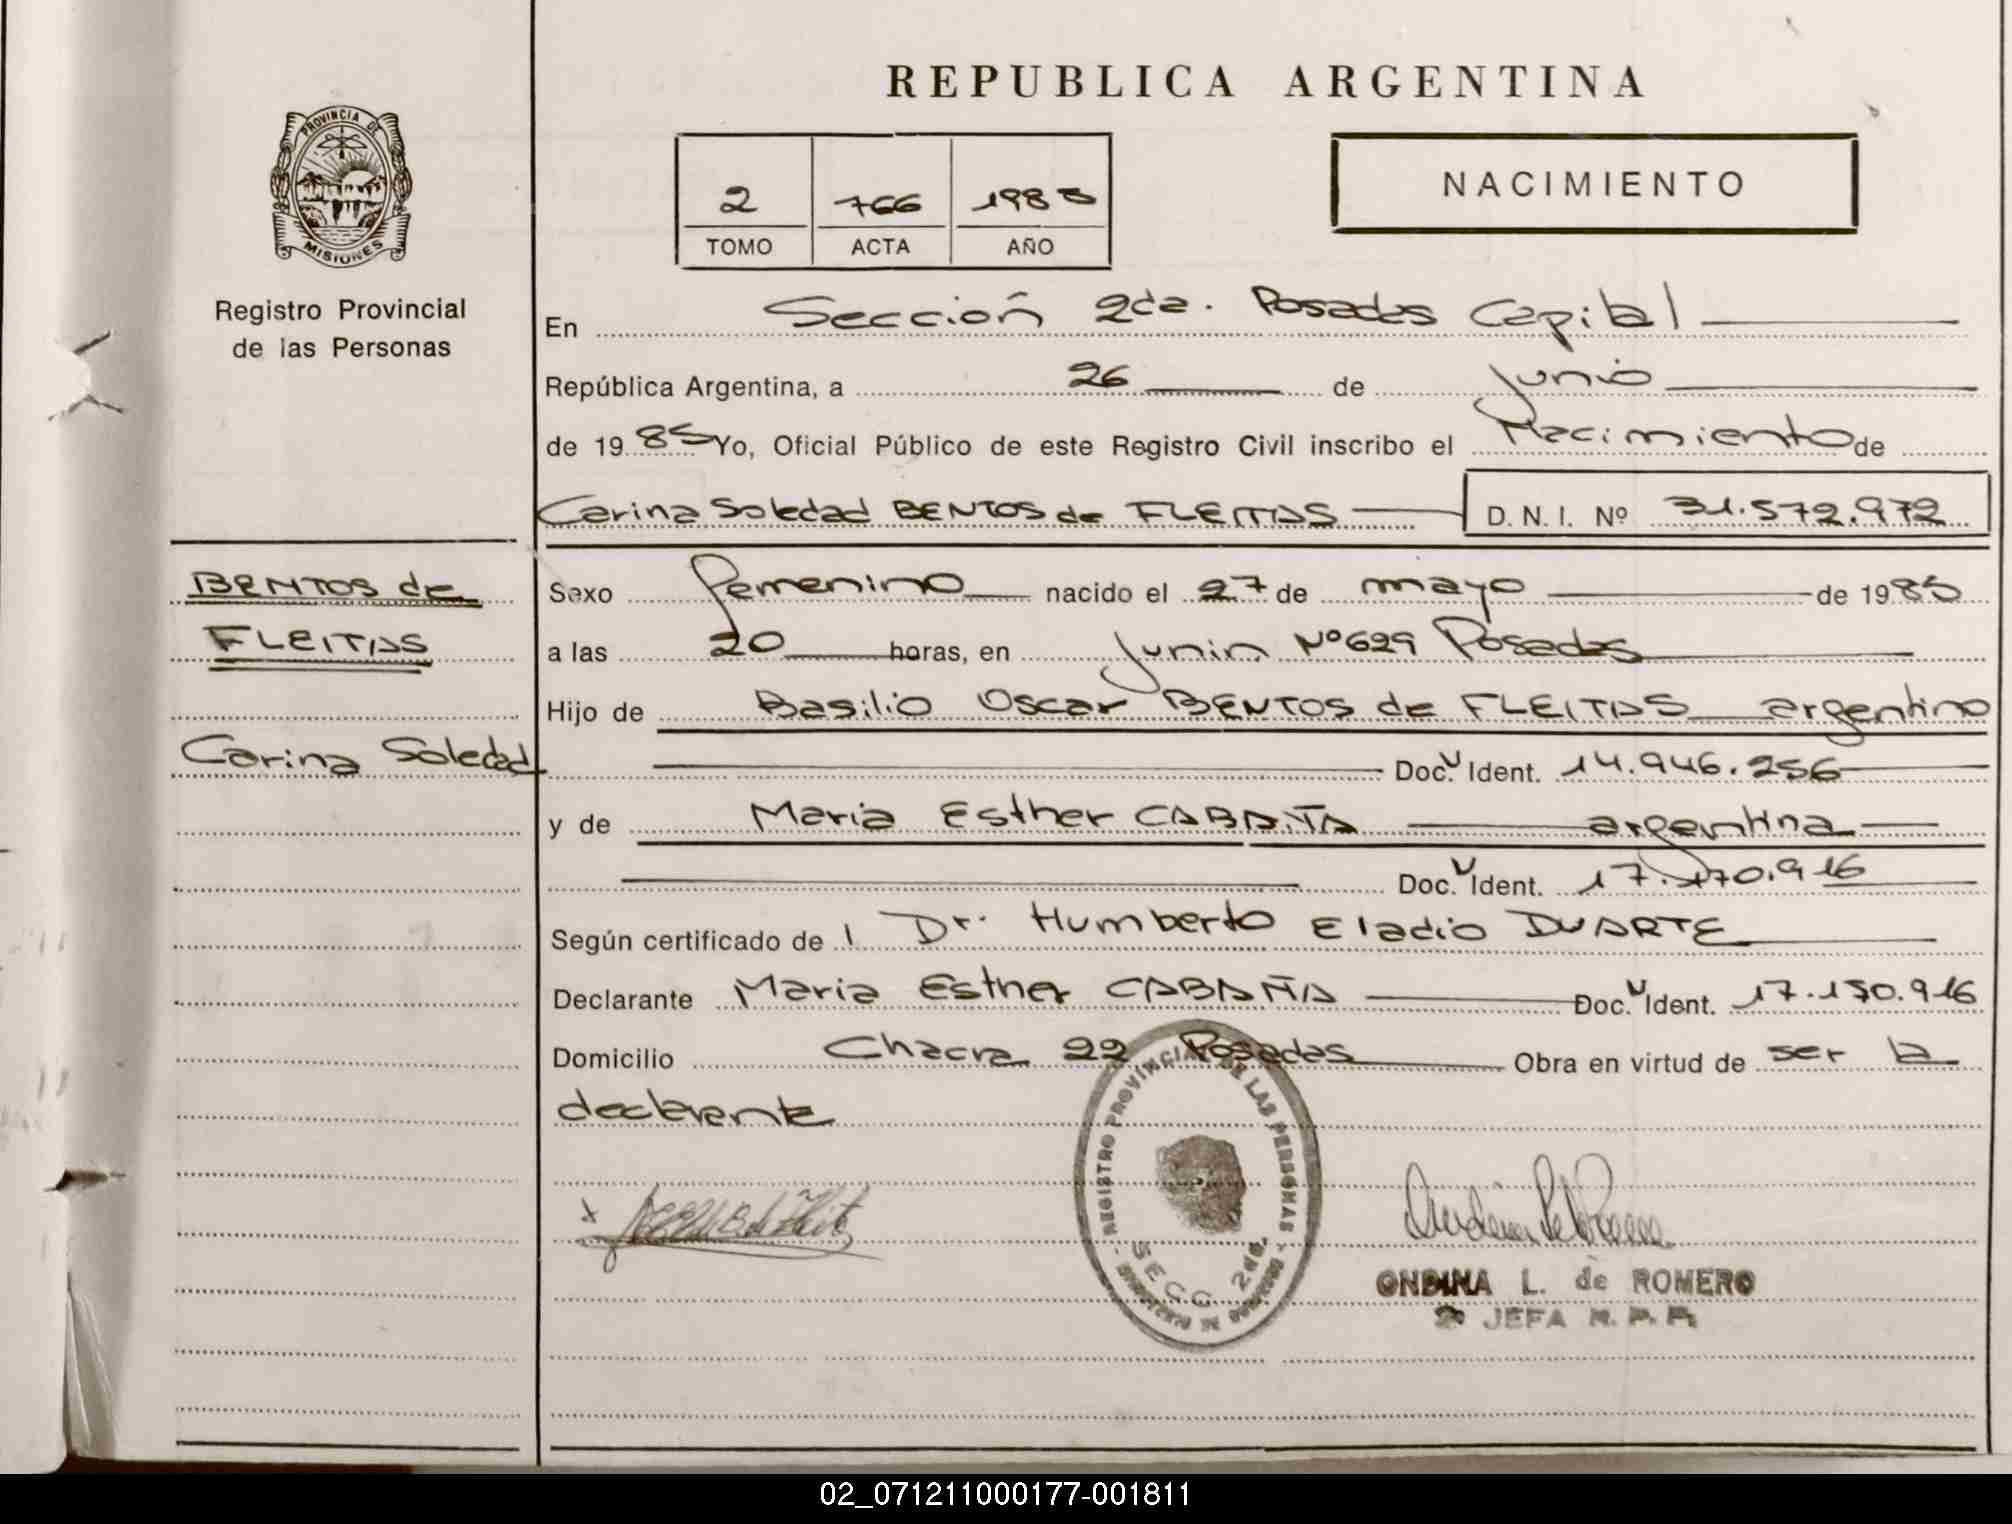 REPUBLICA ARGENTINA
PROVINCIA DE
MISIONES
Registro Provincial
de las Personas
2 766 1985
TOMO ACTA AÑO
NACIMIENTO
En Sección 2da. Posadas Capital
República Argentina, a 26 de Junio
de 1985 Yo, Oficial Público de este Registro Civil inscribo el Nacimiento de
Carina Soledad BENTOS de FLEITAS D. N. I. Nº 31.572.972
BENTOS de
FLEITAS
Carina Soledad
Sexo femenino nacido el 27 de mayo de 1985
a las 20 horas, en Junin Nº 629 Posadas
Hijo de Basilio Oscar BENTOS de FLEITAS argentino
Doc. Ident. 14.946.256
y de Maria Esther CABAÑA argentina
Doc. Ident. 17.170.916
Según certificado de Dr. Humberto Eladio DUARTE
Declarante Maria Esther CABAÑA Doc. Ident. 17.170.916
Domicilio Chacra 22 Posadas Obra en virtud de ser la
declarante
REGISTRO PROVINCIAL DE LAS PERSONAS
SECC 2da.
MINISTERIO DE GOBIERNO
ONDINA L. de ROMERO
JEFA R. P. P.
02_071211000177-001811